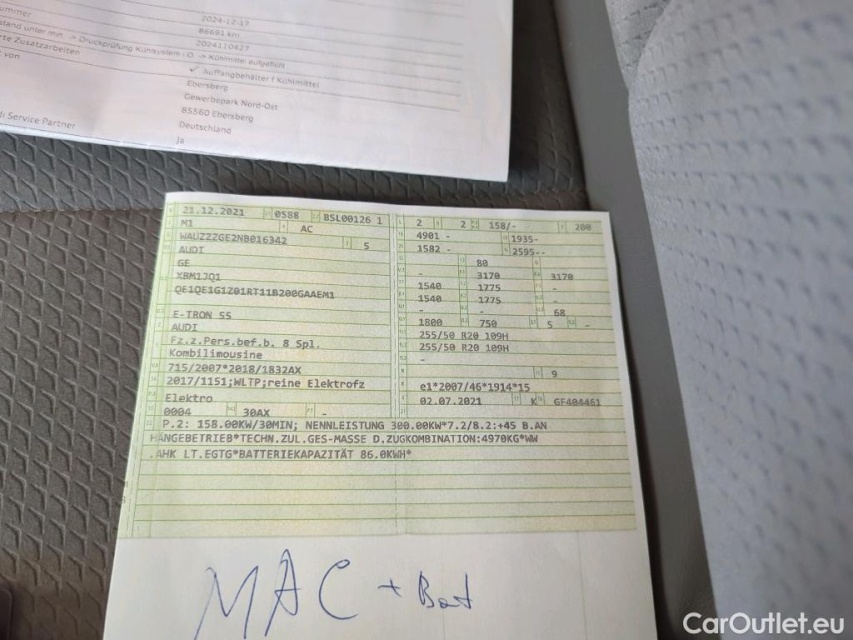 2024-12-17
86691 km
2024110427
stand unter min. -> Druckprüfung Kühlsystem i.O. -> Kühlmittel aufgefüllt
rte Zusatzarbeiten
✓ Auffangbehälter f Kühlmittel
von
Ebersberg
Gewerbepark Nord-Ost
85560 Ebersberg
Deutschland
di Service Partner
Ja
21.12.2021 0588 BSL00126 1
M1 AC
WAUZZZGE2NB016342 5
AUDI
GE
XRM1JQ1
QE1QE1G1Z01RT11B200GAAEM1
E-TRON 55
AUDI
Fz.z.Pers.bef.b. 8 Spl.
Kombilimousine
715/2007*2018/1832AX
2017/1151;WLTP;reine Elektrofz
Elektro
0004 30AX -
2 2 158/- 200
4901 - 1935-
1582 - 2595--
80
- 3170 3170
1540 1775 -
1540 1775 -
- 68
1800 750 5 -
255/50 R20 109H
255/50 R20 109H
-
9
e1*2007/46*1914*15
02.07.2021 K GF404461
P.2: 158.00KW/30MIN; NENNLEISTUNG 300.00KW*7.2/8.2:+45 B.AN
HÄNGEBETRIEB*TECHN.ZUL.GES-MASSE D.ZUGKOMBINATION:4970KG*WW
.AHK LT.EGTG*BATTERIEKAPAZITÄT 86.0KWH*
MAC + Bat
CarOutlet.eu